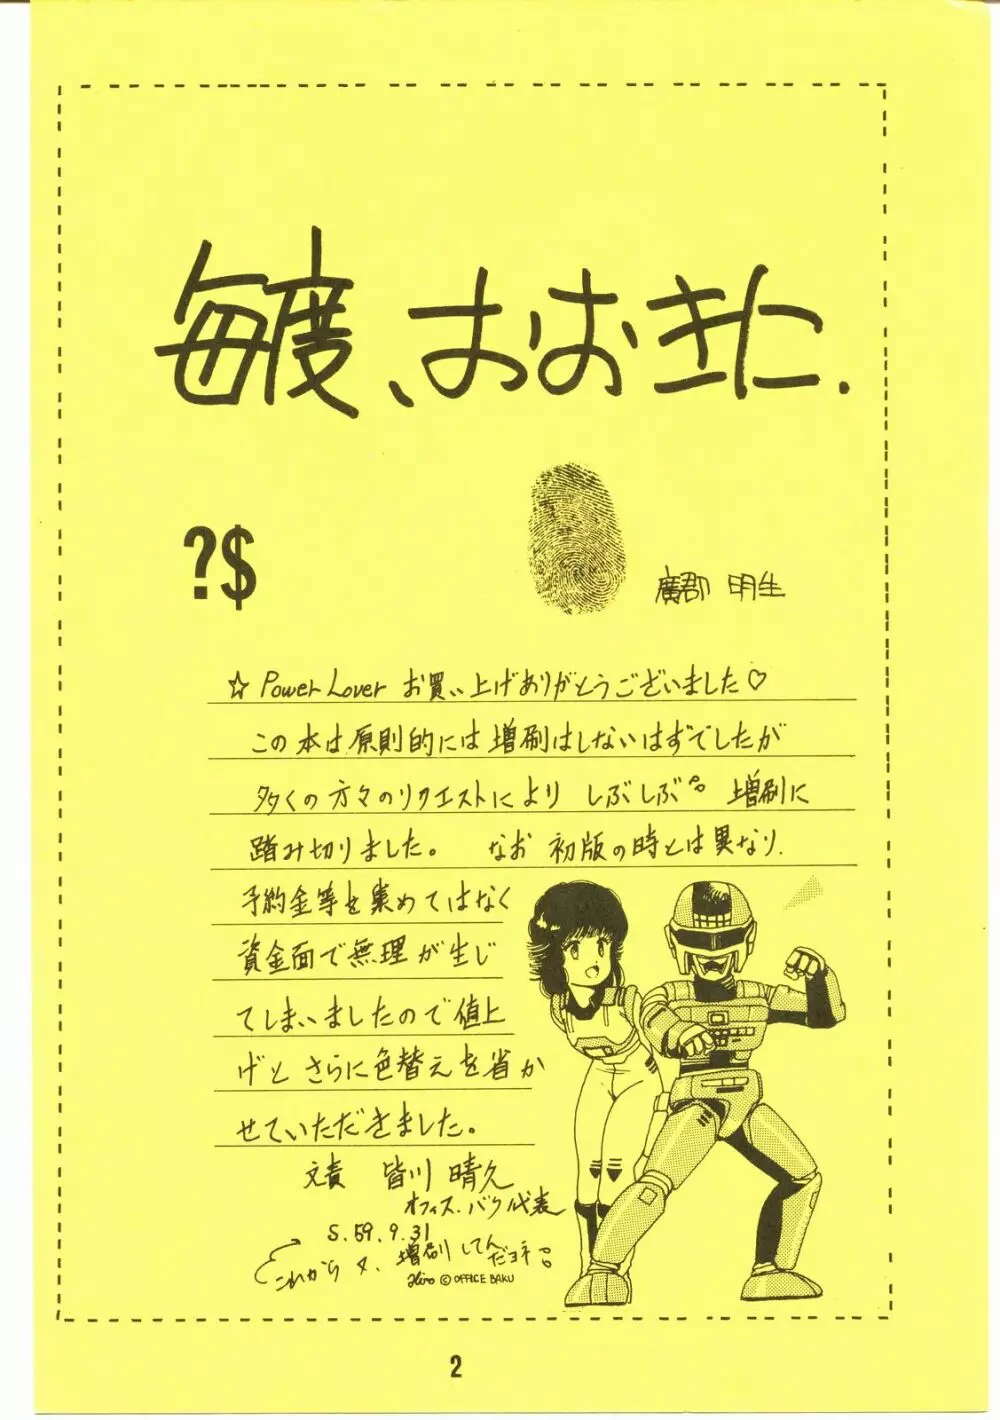 毎度、おおきに.
?$
廣郡 明生
☆ Power Lover お買い上げありがとうございました♡
この本は原則的には増刷はしないはずでしたが
多くの方々のリクエストにより しぶしぶ 増刷に
踏み切りました。 なお 初版の時とは異なり、
予約金等を集めてはなく
資金面で無理が生じ
てしまいましたので値上
げと さらに色替えを省か
せていただきました。
文責 皆川 晴久
オフィス.バク代表
S.59.9.31
これから 又、増刷してん
だヨネ
Hiro © OFFICE BAKU
2